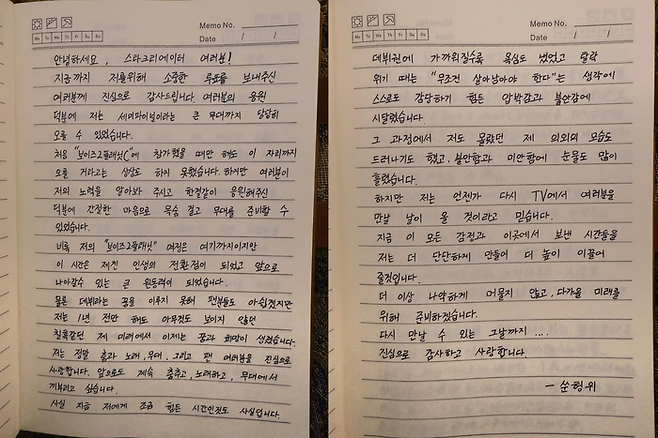 Memo No.
Mo Tu We Th Fr Sa Su
Date / /
안녕하세요, 스타크리에이터 여러분!
지금까지 저를위해 소중한 투표를 보내주신
여러분께 진심으로 감사드립니다. 여러분의 응원
덕분에 저는 세미파이널이라는 큰 무대까지 당당히
오를 수 있었습니다.
처음 "보이즈2플래닛C"에 참가했을 때만 해도 이 자리까지
오를 거라고는 상상도 하지 못했습니다. 하지만 여러분이
저의 노력을 알아봐 주시고 한결같이 응원해주신
덕분에 간절한 마음으로 목숨 걸고 무대를 준비할 수
있었습니다.
비록 저의 "보이즈2플래닛" 여정은 여기까지이지만
이 시간은 제겐 인생의 전환점이 되었고 앞으로
나아갈수 있는 큰 원동력이 되었습니다.
물론 데뷔라는 꿈을 이루지 못해 팬분들도 아쉽겠지만
저는 1년 전만 해도 아무것도 보이지 않던
칠흑같던 제 미래에서 이제는 꿈과 희망이 생겼습니다.
저는 정말 춤과 노래, 무대, 그리고 팬 여러분을 진심으로
사랑합니다. 앞으로도 계속 춤추고, 노래하고, 무대에서
끼부리고 싶습니다.
사실 지금 저에게 조금 힘든 시간인것도 사실입니다.
Memo No.
Mo Tu We Th Fr Sa Su
Date / /
데뷔권에 가까워질수록 욕심도 났었고 탈락
위기 때는 "무조건 살아남아야 한다"는 생각에
스스로도 감당하기 힘든 압박감과 불안감에
시달렸습니다.
그 과정에서 저도 몰랐던 제 의외의 모습도
드러나기도 했고, 불안함과 미안함에 눈물도 많이
흘렸습니다.
하지만 저는 언젠가 다시 TV에서 여러분을
만날 날이 올 것이라고 믿습니다.
지금 이 모든 감정과 이곳에서 보낸 시간들을
저는 더 단단하게 만들어 더 높이 이끌어
줄것입니다.
더 이상 나약하게 머물지 않고, 다가올 미래를
위해 준비하겠습니다.
다시 만날 수 있는 그날까지 ....
진심으로 감사하고 사랑합니다.
— 쑨헝위